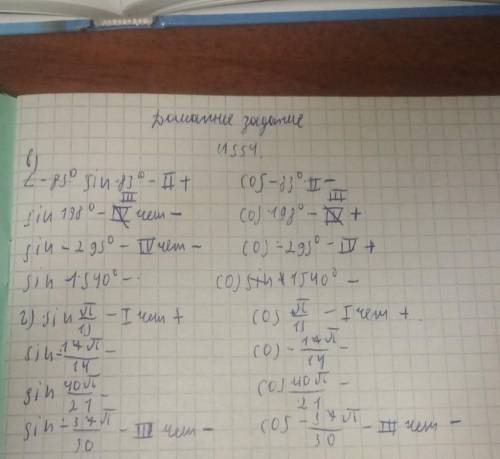 Домашнее задание
N554.
в)
∠-83° sin-83° - II + cos-83° II -
sin 198° - III чет - cos 198° - III +
sin - 295° - IV чет - cos -295° - IV +
sin 1540° - cos 1540° -
г) sin π/13 - I чет + cos π/13 - I чет +.
sin -17π/14 - cos -17π/14 -
sin 40π/21 - cos 40π/21 -
sin -37π/30 - III чет - cos -37π/30 - III чет -